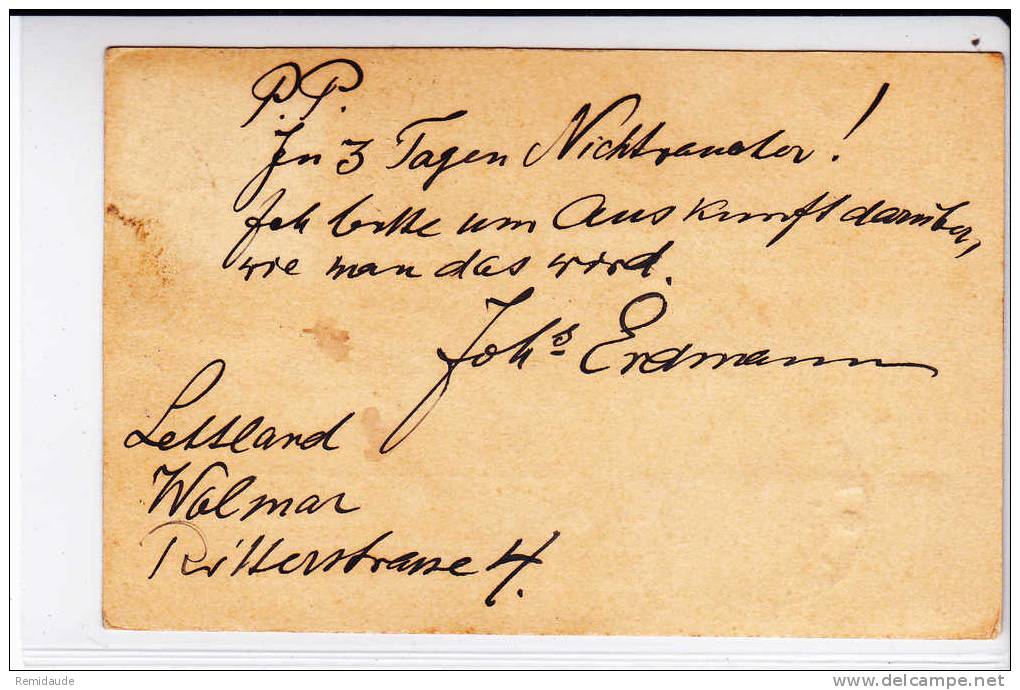 P.P.
In 3 Tagen Nichtraucher!
Ich bitte um Auskunft darüber,
wie man das wird.
Johs Erdmann
Lettland
Wolmar
Ritterstrasse 4.
Remidaude
www.delcampe.net